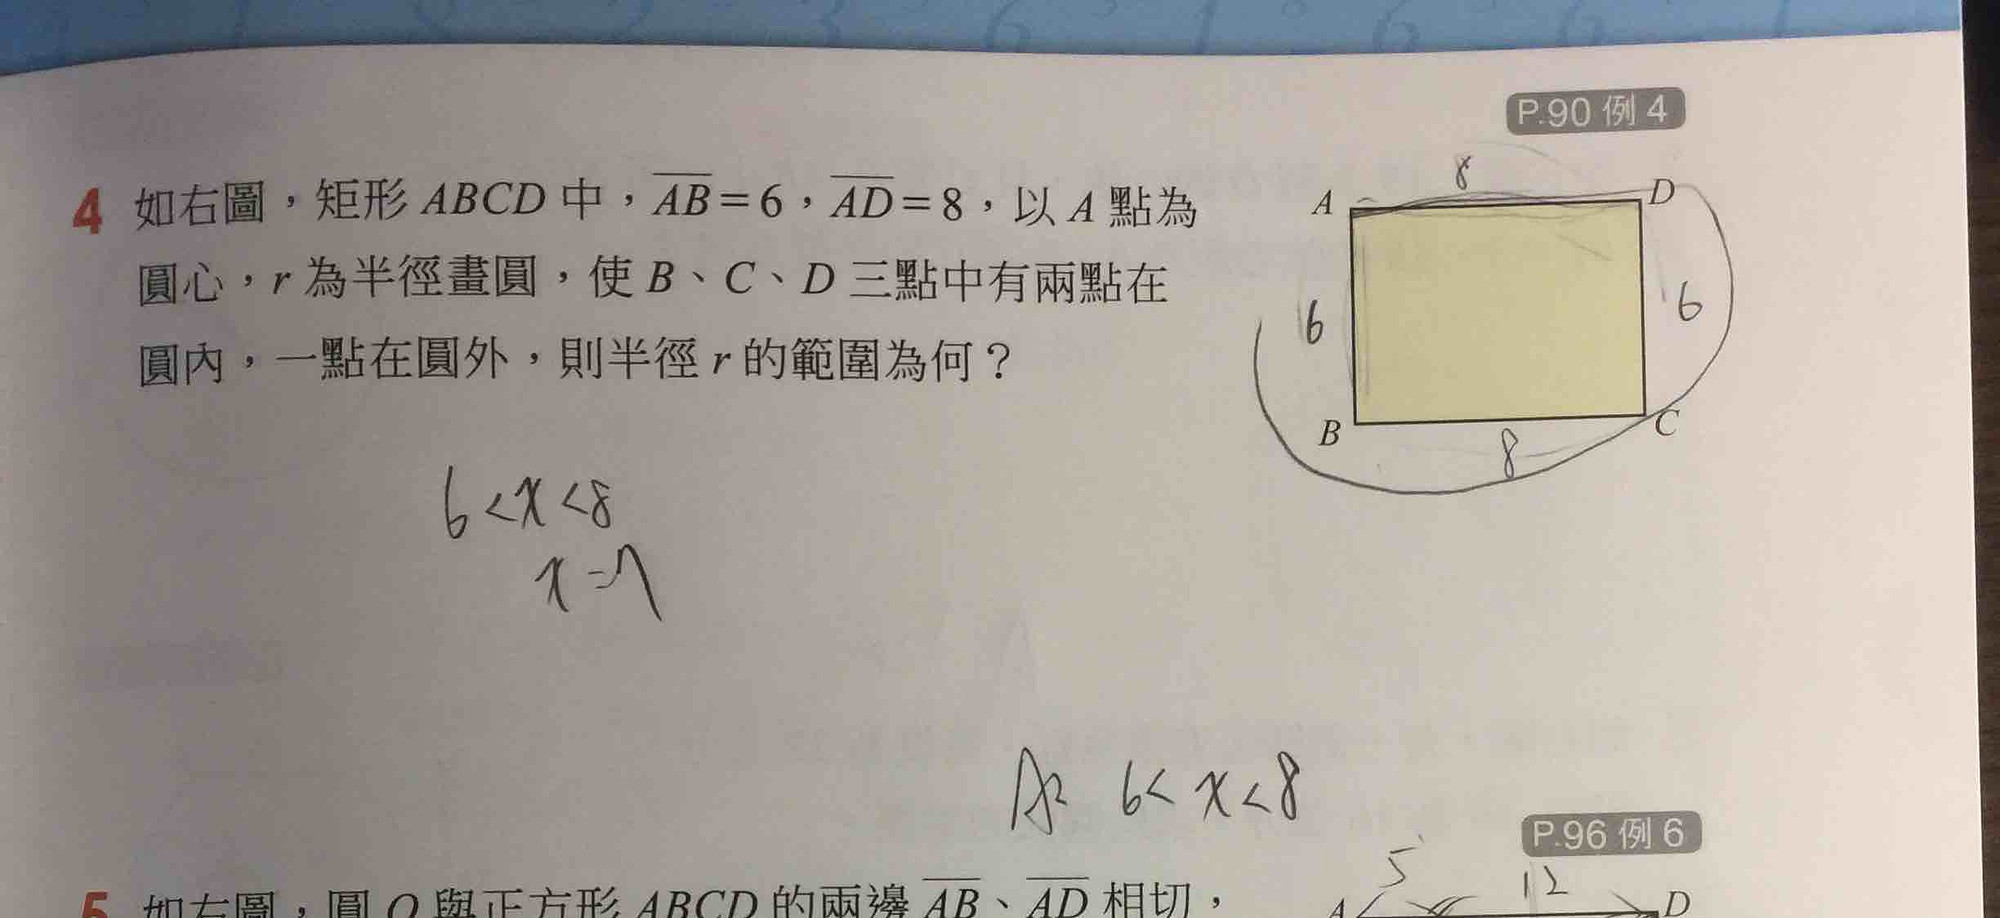 P.90 例 4
4 如右圖，矩形 ABCD 中，AB=6，AD=8，以 A 點為
圓心，r 為半徑畫圓，使 B、C、D 三點中有兩點在
圓內，一點在圓外，則半徑 r 的範圍為何？
8
A
D
6
6
B
8
C
6<x<8
x=7
A: 6<x<8
P.96 例 6
5 如右圖，圓 O 與正方形 ABCD 的兩邊 AB、AD 相切，
5
12
A
D